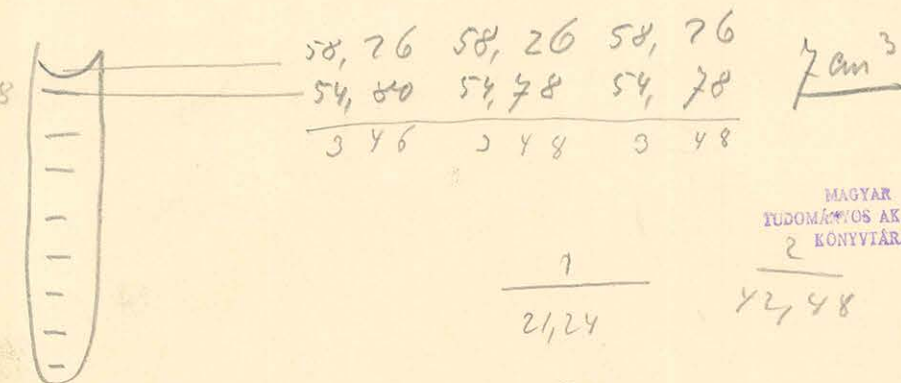 58,26 58,26 58,26
8 54,80 54,78 54,78 7 cm³
3 46 3 48 3 48
MAGYAR
TUDOMÁNYOS AK
KÖNYVTÁR
1 2
21,24 42,48